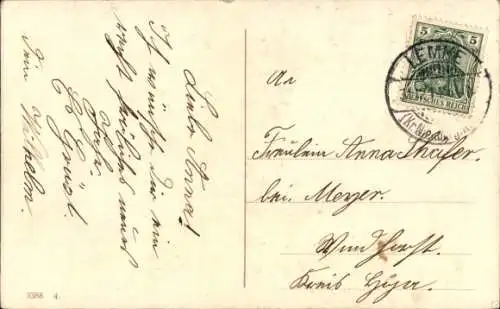 Liebe Anna!
Ich wünsche Dir ein
recht fröhliches neues
Jahr.
Es Grüßt
Dein Wilhelm.
An
Fräulein Anna Thäfer.
bei Meyer.
Windhorst.
Kreis Hoya.
5 5
DEUTSCHES REICH
LEMKE
3388 4.